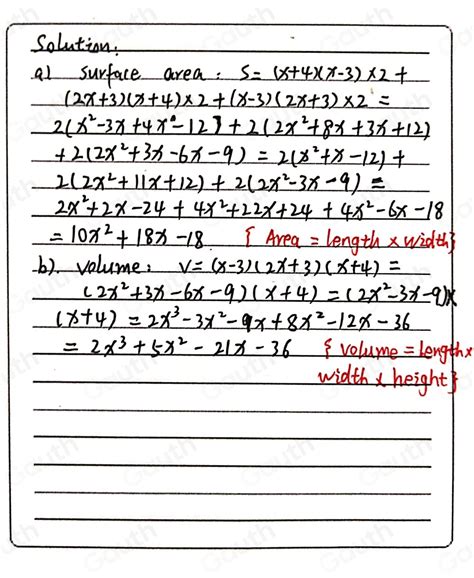 Solution:
a) surface area: S = (x+4)(x-3)×2 +
(2x+3)(x+4)×2 + (x-3)(2x+3)×2 =
2(x²-3x+4x-12) + 2(2x²+8x+3x+12)
+2(2x²+3x-6x-9) = 2(x²+x-12) +
2(2x²+11x+12) + 2(2x²-3x-9) =
2x²+2x-24 + 4x²+22x+24 + 4x²-6x-18
= 10x²+18x-18 {Area = length × width}
b). volume: V = (x-3)(2x+3)(x+4) =
(2x²+3x-6x-9)(x+4) = (2x²-3x-9)×
(x+4) = 2x³-3x²-9x+8x²-12x-36
= 2x³+5x²-21x-36 {volume = length×
width × height}